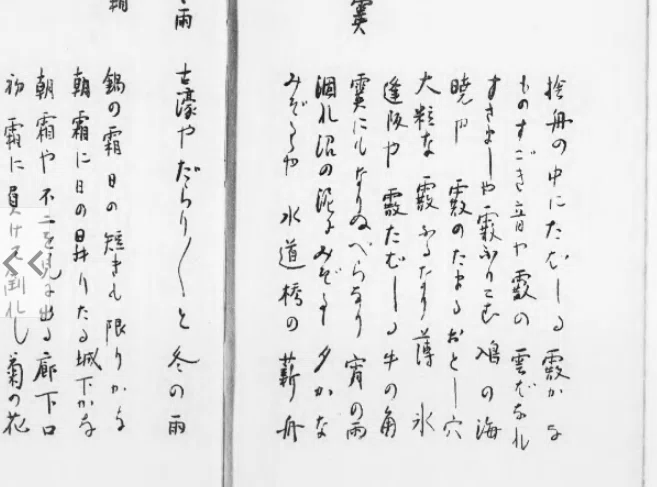 捨舟の中にたばしる霰かな
ものすごき音や霰の
すさましや霰ふりこむ鳰の海
暁や 霰のたまるおとし穴
大粒な霰ふるなり薄氷
逢阪や霰たばしる牛の角
霙
霙にもなりぬべらなり宵の雨
涸れ沼の泥にみぞるゝ夕かな
みぞるゝや水道橋の薪舟
雨
古濠やだらり〳〵と冬の雨
霜
鍋の霜日の短きも限りかな
朝霜に日の昇りたる城下かな
朝霜や不二を見に出る廊下口
初霜に負けて倒れし菊の花